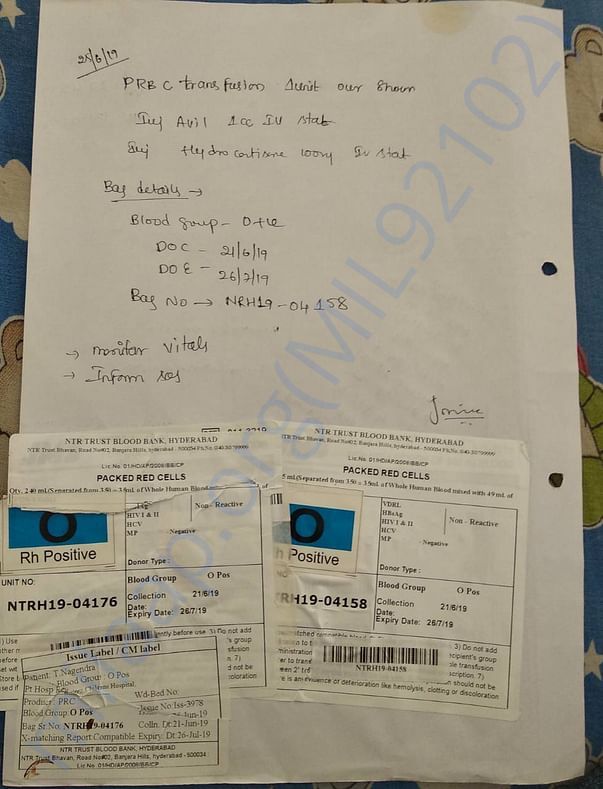 28/6/19
PRBC transfusion 1unit over 3hours
Inj Avil 1cc IV stat
Inj Hydrocortisone 100mg IV stat
Bag details →
Blood group - O+ve
DOC - 21/6/19
DOE - 26/7/19
Bag No → NRH19-04158
→ monitor vitals
→ Inform sos
NTR TRUST BLOOD BANK, HYDERABAD
NTR Trust Bhavan, Road No#02, Banjara Hills, hyderabad - 500034 Ph.No. 040-30799999
Lic.No. 01/HD/AP/2008/BB/CP
PACKED RED CELLS
Qty. 240 mL(Separated from 350 = 35mL of Whole Human Blood mixed with 49 mL of
O
Rh Positive
HIV I & II
HCV
MP
Non - Reactive
- Negative
Donor Type :
Blood Group O Pos
UNIT NO:
NTRH19-04176
Collection Date: 21/6/19
Expiry Date: 26/7/19
Issue Label / CM label
Patient: T.Nagendra
Blood Group : O Pos
Pt Hosp
Hospital
Wd-Bed No:
Product: PRC
Issue No:Iss-3978
Blood Group:O Pos
-Jun-19
Bag Sr.No: NTRH19-04176
Colln. Dt:21-Jun-19
X-matching Report Compatible Expiry: Dt:26-Jul-19
NTR TRUST BLOOD BANK, HYDERABAD
NTR Trust Bhavan, Road No#02, Banjara Hills, hyderabad - 500034
Lic.No. 01/HD/AP/2008/BB/CP
NTR TRUST BLOOD BANK, HYDERABAD
TR Trust Bhavan, Road No#02, Banjara Hills, hyderabad - 500034 Ph.No. 040-30799999
Lic.No. 01/HD/AP/2008/BB/CP
PACKED RED CELLS
5 mL(Separated from 350 = 35mL of Whole Human Blood mixed with 49 mL of
O
h Positive
VDRL
HBsAg
HIV I & II
HCV
MP
Non - Reactive
- Negative
Donor Type :
Blood Group O Pos
NO:
RH19-04158
Collection Date: 21/6/19
Expiry Date: 26/7/19
NTRH19-04158
3) Do not add
recipient's group
transfusion
7)
should not be
is an evidence of deterioration like hemolysis, clotting or discoloration
(MIL92102)